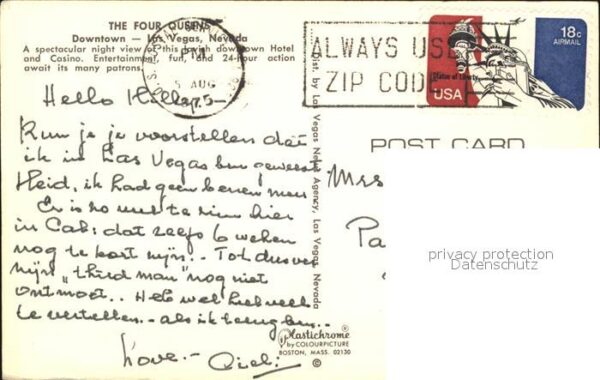 THE FOUR QUEENS
Downtown — Las Vegas, Nevada
A spectacular night view of this lavish downtown Hotel
and Casino. Entertainment, fun, and 24-hour action
await its many patrons.
PM
5 AUG
1975
ALWAYS USE
ZIP CODE
USA
18c
AIRMAIL
Hello
Kun je je voorstellen dat
ik in Las Vegas ben geweest
Heid, ik had geen benen meer
Er is zo veel te zien hier
in Cal: dat zelfs 6 weken
nog te kort zijn.. Tot dusver
mijn "third man" nog niet
ontmoet.. Heb wel heel veel
te vertellen.. als ik terug ben..
Love.-
Dist. by Las Vegas News Agency, Las Vegas, Nevada
POST CARD
Mrs
Pa
privacy protection
Datenschutz
Plastichrome®
by COLOURPICTURE
BOSTON, MASS. 02130
©